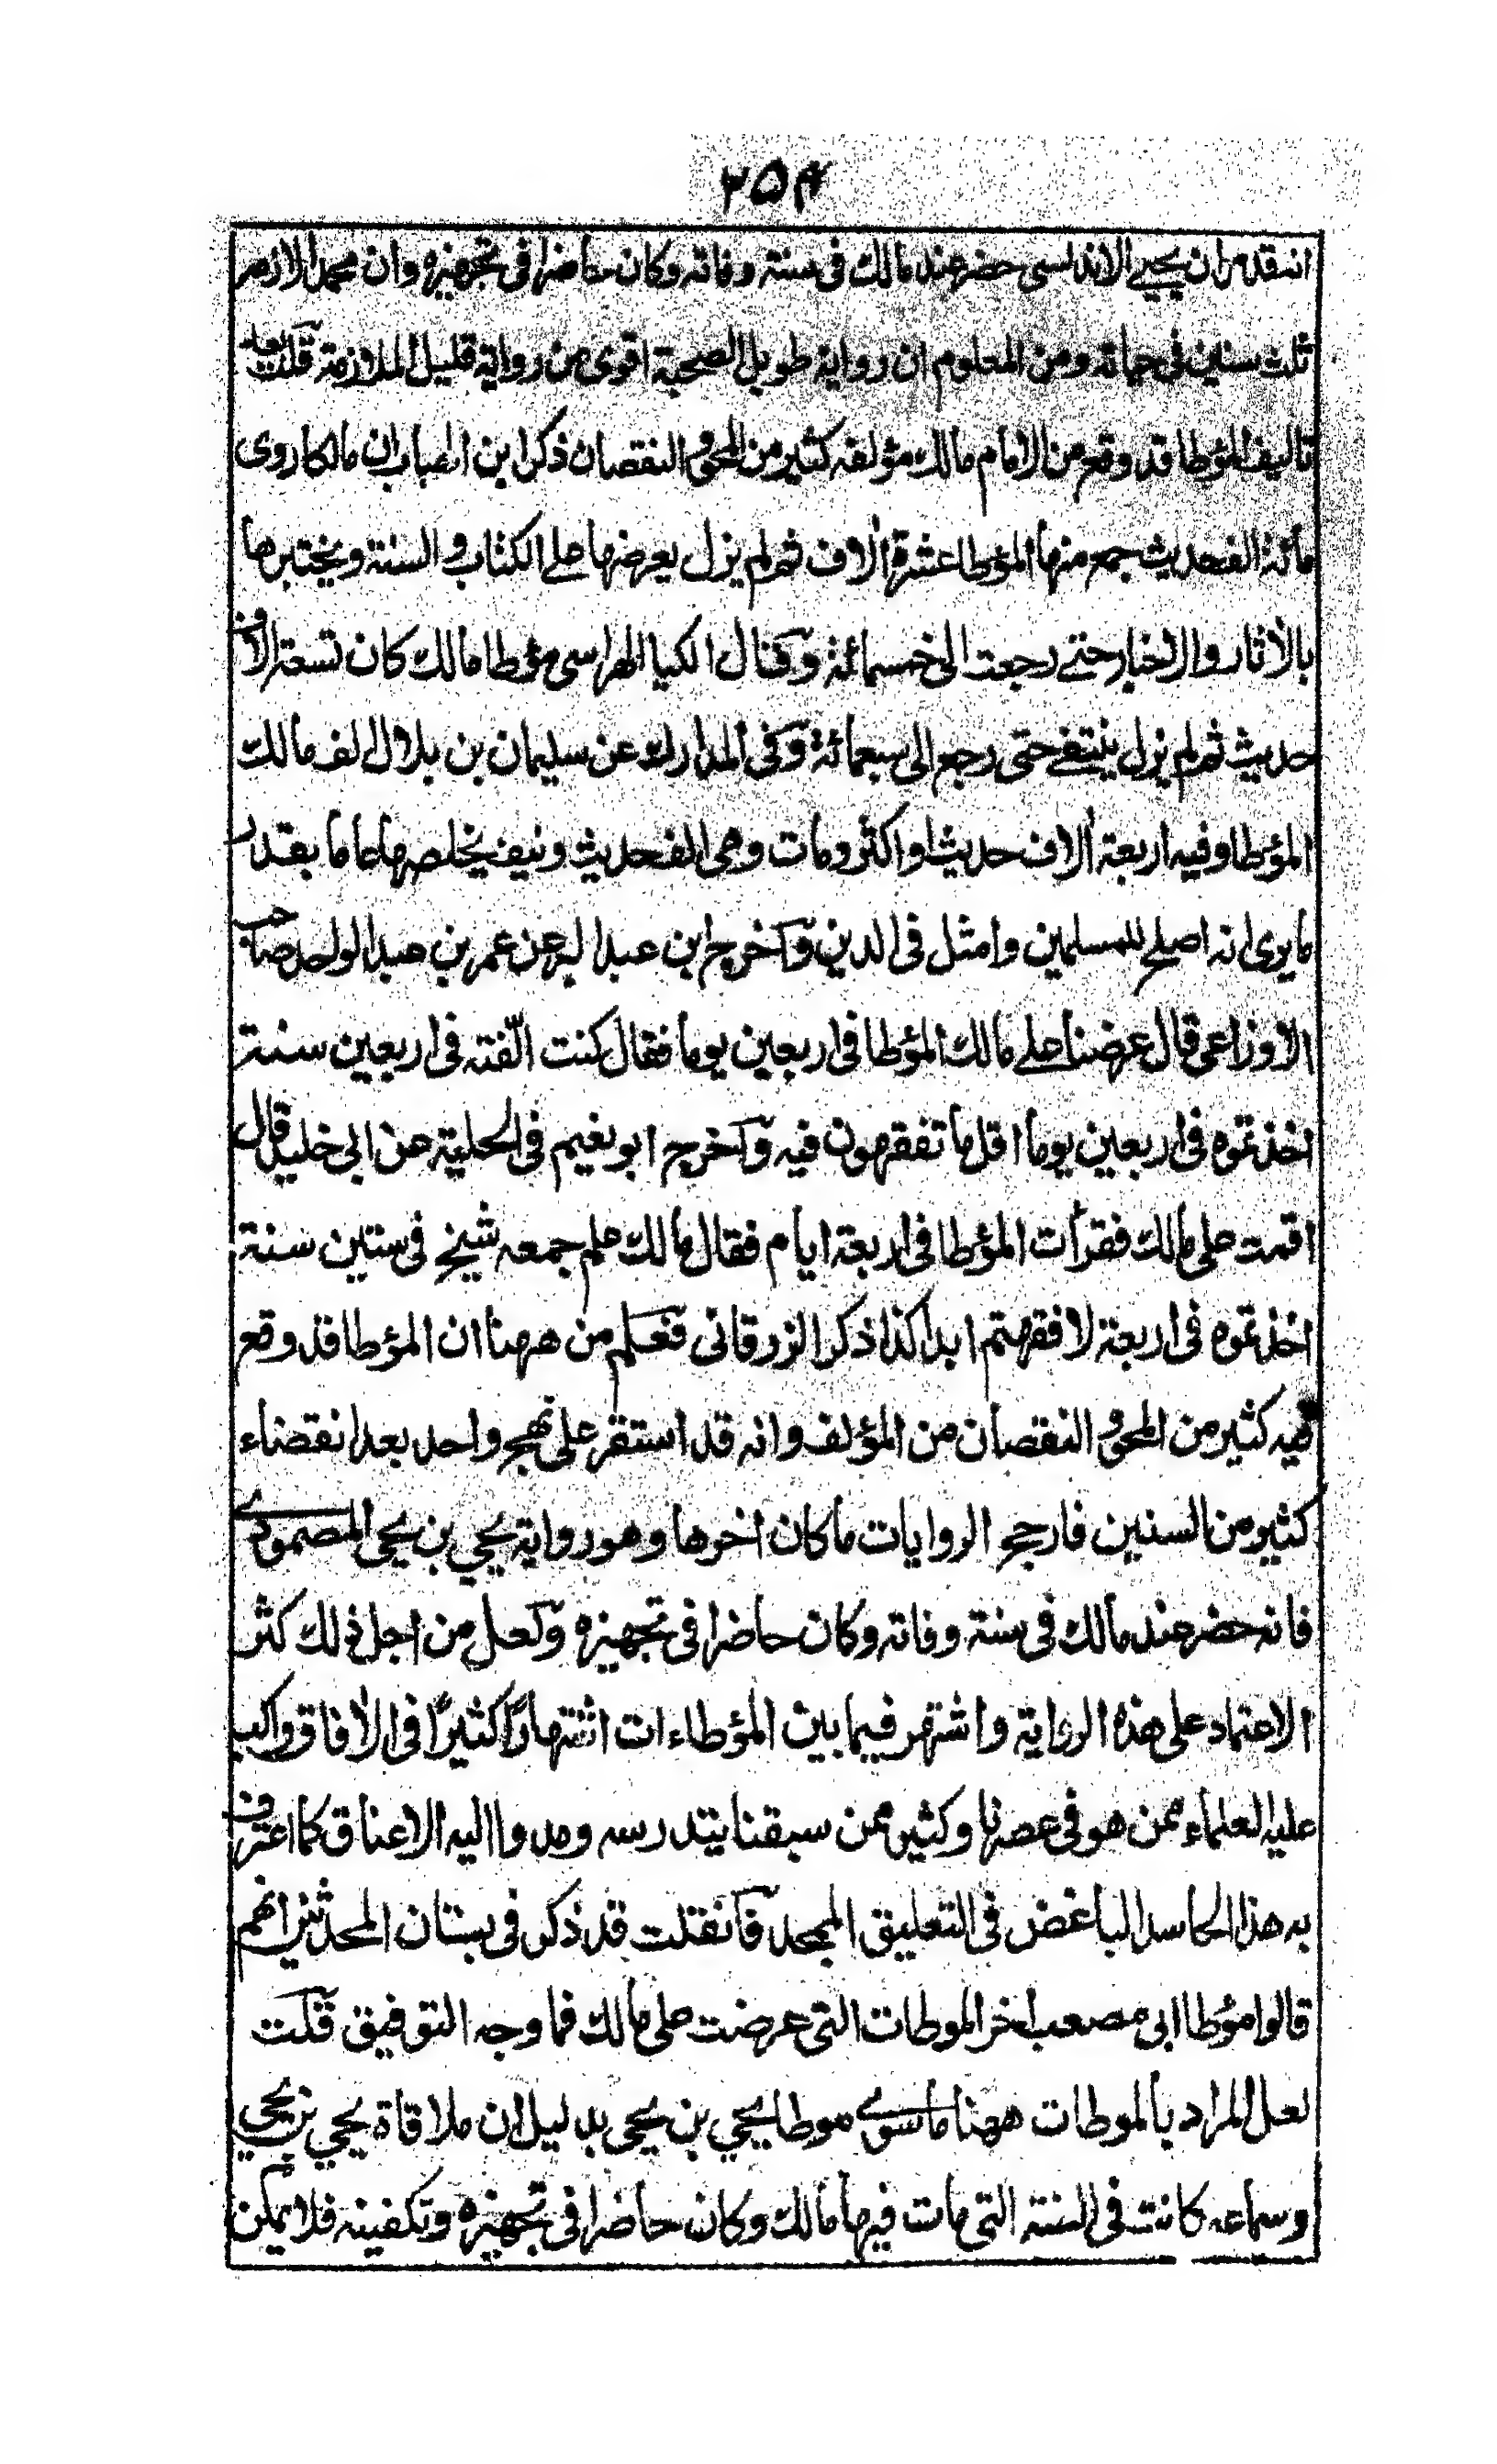 ۲۵۴
انه قد مر ان يحيے الاندلسی حضر عند مالك فی سنة وفاته وكان حاضرا فی تجهيزه وان محمدا لازمه
ثلث سنين فی حياته ومن المعلوم ان رواية طويل الصحبة اقوی من رواية قليل الملازمة قلت بعد
تاليف المؤطا قد وقع من الامام مالك مؤلفه كثير من المحو والنقصان ذكر ابن الهباب ان مالكا روی
مائة الف حديث جمع منها المؤطا عشرة اٰلاف ثم لم يزل يعرضها علے الكتاب والسنة ويختبرها
بالاٰثار والاخبار حتے رجعت الی خمسمائة وقال الكيا الهراسی مؤطا مالك كان تسعة الاف
حديث ثم لم يزل ينتقے حتی رجع الی سبعمائة وفی المدارك عن سليمان بن بلال الف مالك
المؤطا وفيه اربعة اٰلاف حديث او اكثر ومات وهی الف حديث ونيف يخلصها عاما عاما بقدر
ما يری انه اصلح للمسلمين وامثل فی الدين واخرج ابن عبد البر عن عمر بن عبد الواحد صاحب
الاوزاعی قال عرضنا علے مالك المؤطا فی اربعين يوما فقال كنت الّفته فی اربعين سنة
اخذتموه فی اربعين يوما اقل ما تفقهون فيه واخرج ابو نعيم فی الحلية عن ابی خليد قال
اقمت علی مالك فقرأت المؤطا فی اربعة ايام فقال مالك علم جمعه شيخ فی ستين سنة
اخذتموه فی اربعة لا فقهتم ابدا كذا ذكر الزرقانی فعلم من ههنا ان المؤطا قد وقع
فيه كثير من المحو والنقصان من المؤلف وانه قد استقر علی نهج واحد بعد انقضاء
كثير من السنين فارجح الروايات ما كان اخرها وهو رواية يحيی بن يحيی المصمودے
فانه حضر عند مالك فی سنة وفاته وكان حاضرا فی تجهيزه ولعل من اجل ذلك كثر
الاعتماد علی هذه الرواية واشتهر فيما بين المؤطاءات اشتهارًا كثيرًا فی الاٰفاق واكب
عليه العلماء ممن هو فی عصرنا وكثير ممن سبقنا بتدرسه ومدوا اليه الاعناق كما اعترف
به هذا الحاسد الباغض فی التعليق الممجد فان قلت قد ذكر فی بستان المحدثين انهم
قالوا مؤطا ابی مصعب اٰخر الموطات التی عرضت علی مالك فما وجه التوفيق قلت
لعل المراد بالموطات ههنا ما سوے موطا يحيی بن يحيی بدليل ان ملاقاة يحيی بن يحيی
وسماعه كانت فی السنة التی مات فيها مالك وكان حاضرا فی تجهيزه وتكفينه فلا يمكن